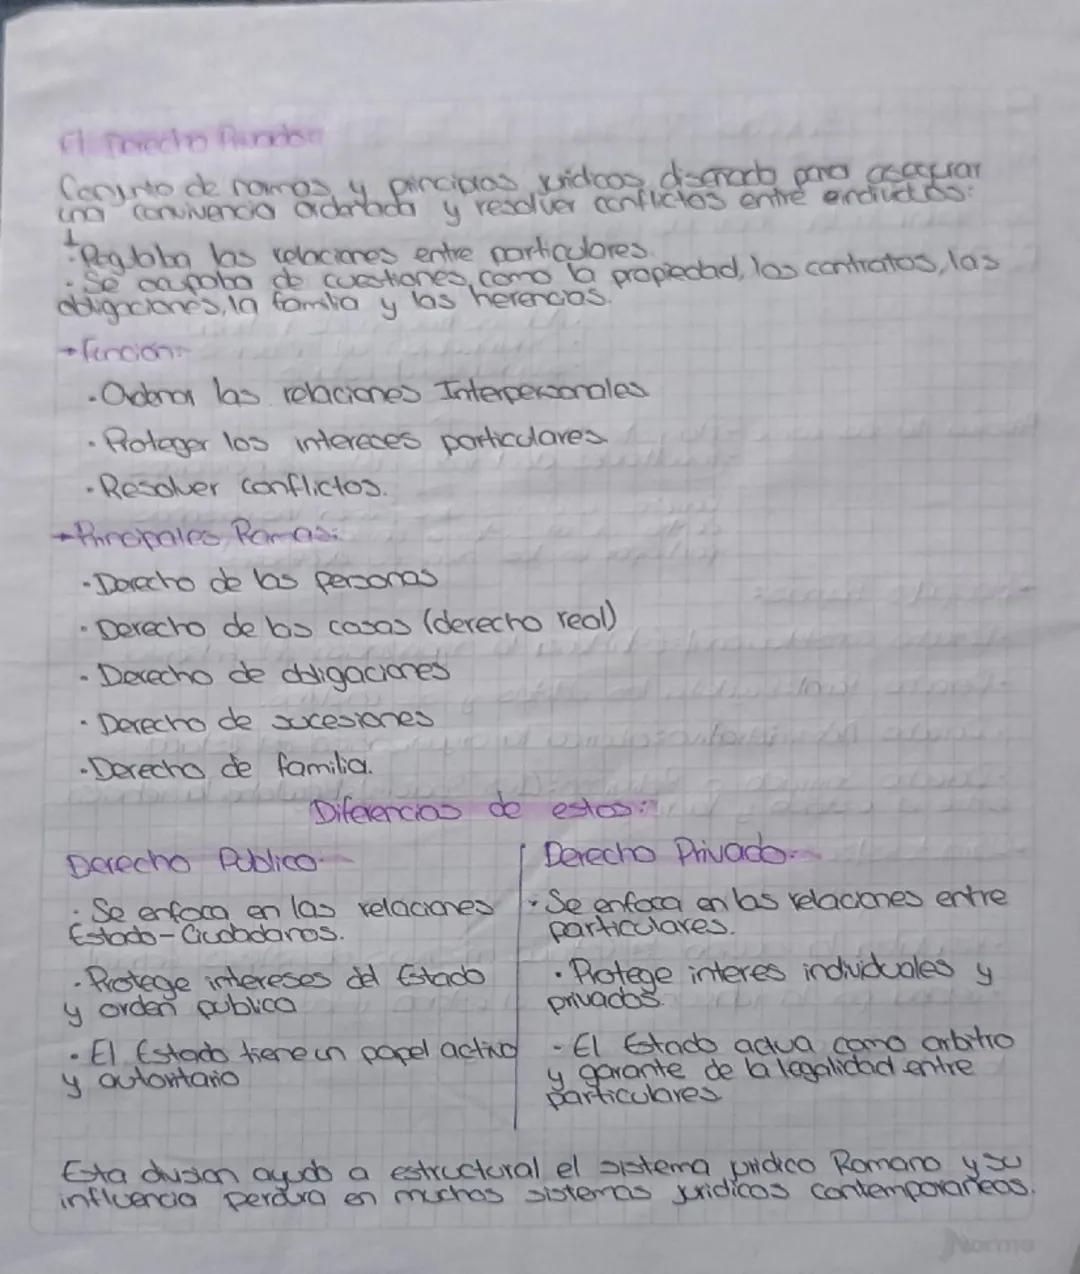 El Derecho
Conjunto de normas y principios jurídicos diseñado para asegurar
una convivencia ordenada y resolver conflictos entre individuos:
· Regulaba las relaciones entre particulares.
· Se ocupaba de cuestiones, como la propiedad, los contratos, las
obligaciones, la familia y las herencias.
→ Función:
· Ordenar las relaciones Interpersonales
· Proteger los intereces particulares
· Resolver conflictos.
→ Principales Ramas:
· Derecho de las personas
· Derecho de las cosas (derecho real)
· Derecho de obligaciones
· Derecho de sucesiones
· Derecho de familia.
Diferencias de estos:
Derecho Público.
· Se enfoca en las relaciones
Estado-Ciudadanos.
· Protege intereses del Estado
y orden publico
· El Estado tiene un papel activo
y autoritario
Derecho Privado.
· Se enfoca en las relaciones entre
particulares.
· Protege interes individuales y
privados.
· El Estado actua como arbitro
y garante de la legalidad entre
particulares
Esta division ayudo a estructural el sistema juridico Romano y su
influencia perdura en muchos sistemas juridicos contemporaneos.
Norma